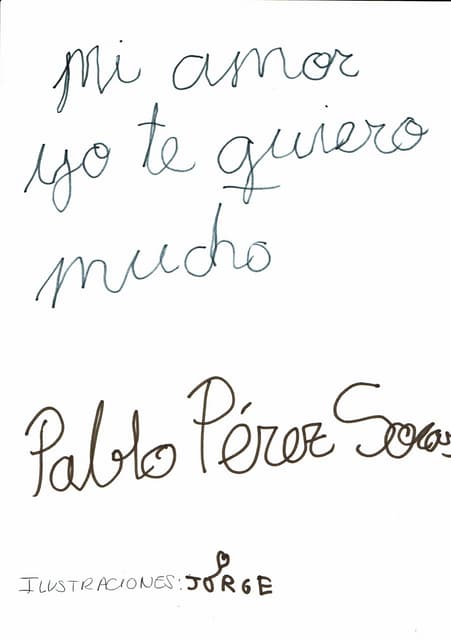 mi amor
yo te quiero
mucho
Pablo Pérez
ILUSTRACIONES: JORGE